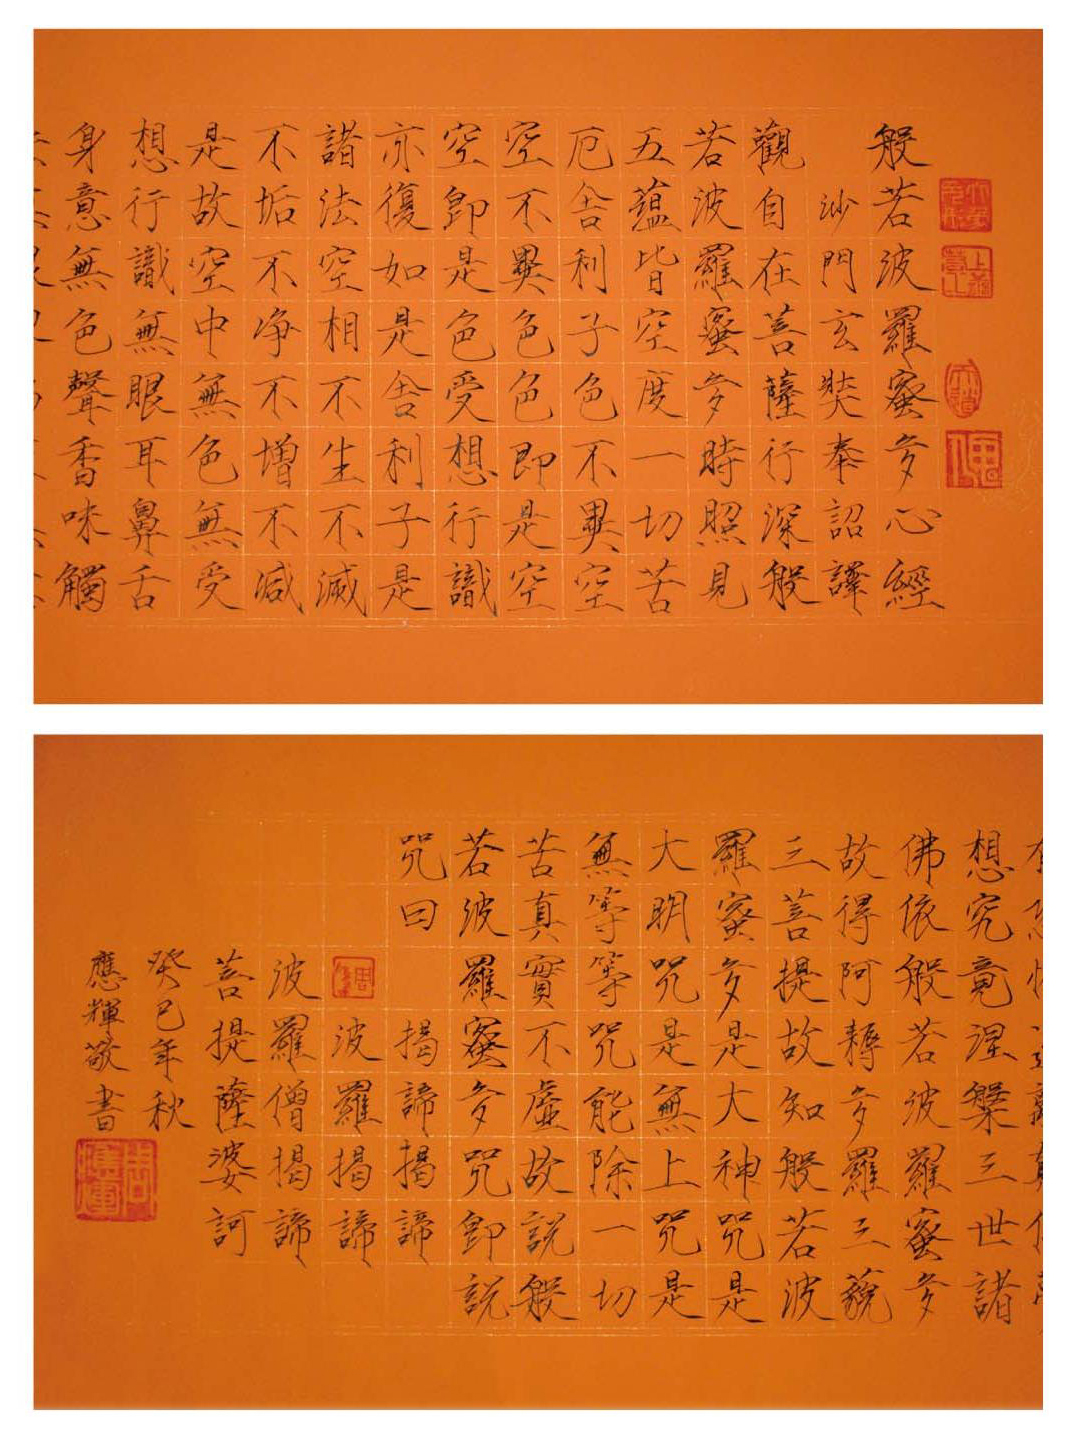 般若波羅蜜多心經
沙門玄奘奉詔譯
觀自在菩薩行深般
若波羅蜜多時照見
五蘊皆空度一切苦
厄舍利子色不異空
空不異色色即是空
空即是色受想行識
亦復如是舍利子是
諸法空相不生不滅
不垢不净不增不减
是故空中無色無受
想行識無眼耳鼻舌
身意無色聲香味觸
想究竟涅槃三世諸
佛依般若波羅蜜多
故得阿耨多羅三藐
三菩提故知般若波
羅蜜多是大神咒是
大明咒是無上咒是
無等等咒能除一切
苦真實不虛故説般
若波羅蜜多咒即説
咒曰 揭諦揭諦
波羅揭諦
波羅僧揭諦
菩提薩婆訶
癸巳年秋
應輝敬書